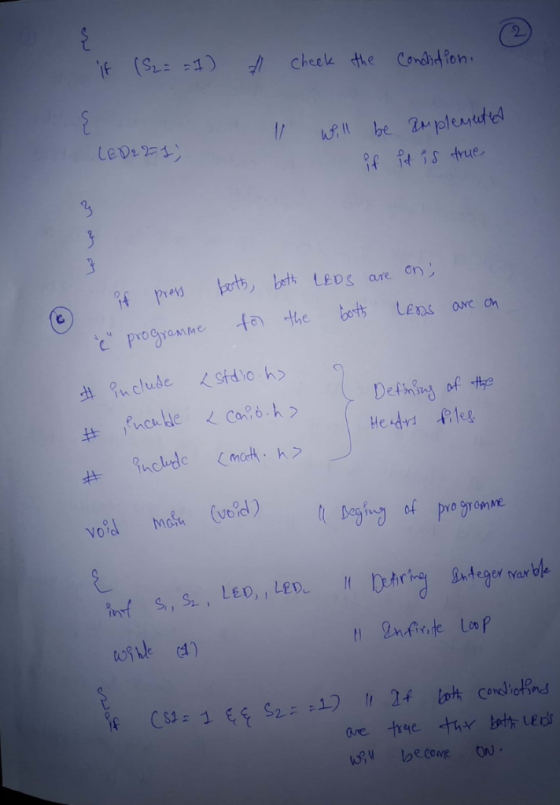 2
{
if (S2= =1) // check the Condition.
{
LED2=1; // will be Implemented
if it is true
}
}
}
if press both, both LEDS are on;
c "c" programme for the both LEDS are on
# include <stdio.h>
# incuble <conio.h> Defining of the
# include <math.h> Headrs files
void main (void) // Beging of programme
{
int S1, S2, LED1, LED2 // Defining Integer varble
while (1) // Infinite Loop
{
if (S1= 1 && S2= =1) // If both conditions
are true the both LED's
will become ON.